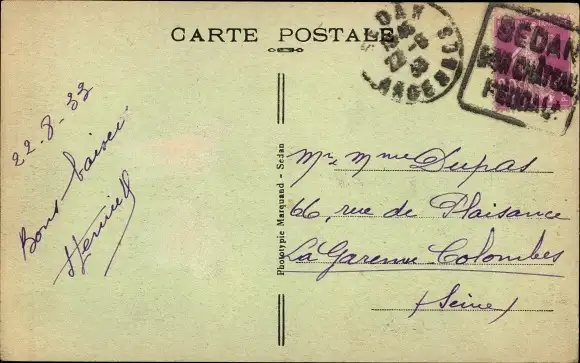 CARTE POSTALE
SEDAN
ARDEN
SEDAN
SON CHÂTEAU
FÉODAL
22-8-33
Bons baisers
Phototypie Marquand - Sedan
Mr. Mme Dupas
66, rue de Plaisance
La Garenne Colombes
(Seine)